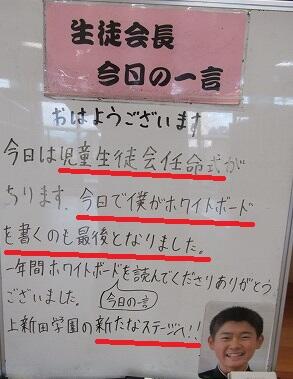 生徒会長
今日の一言
おはようございます
今日は児童生徒会任命式が
あります。今日で僕がホワイトボード
を書くのも最後となりました。
一年間ホワイトボードを読んでくださりありがとう
ございました。
今日の一言
上新田学園の新たなステージへ!!